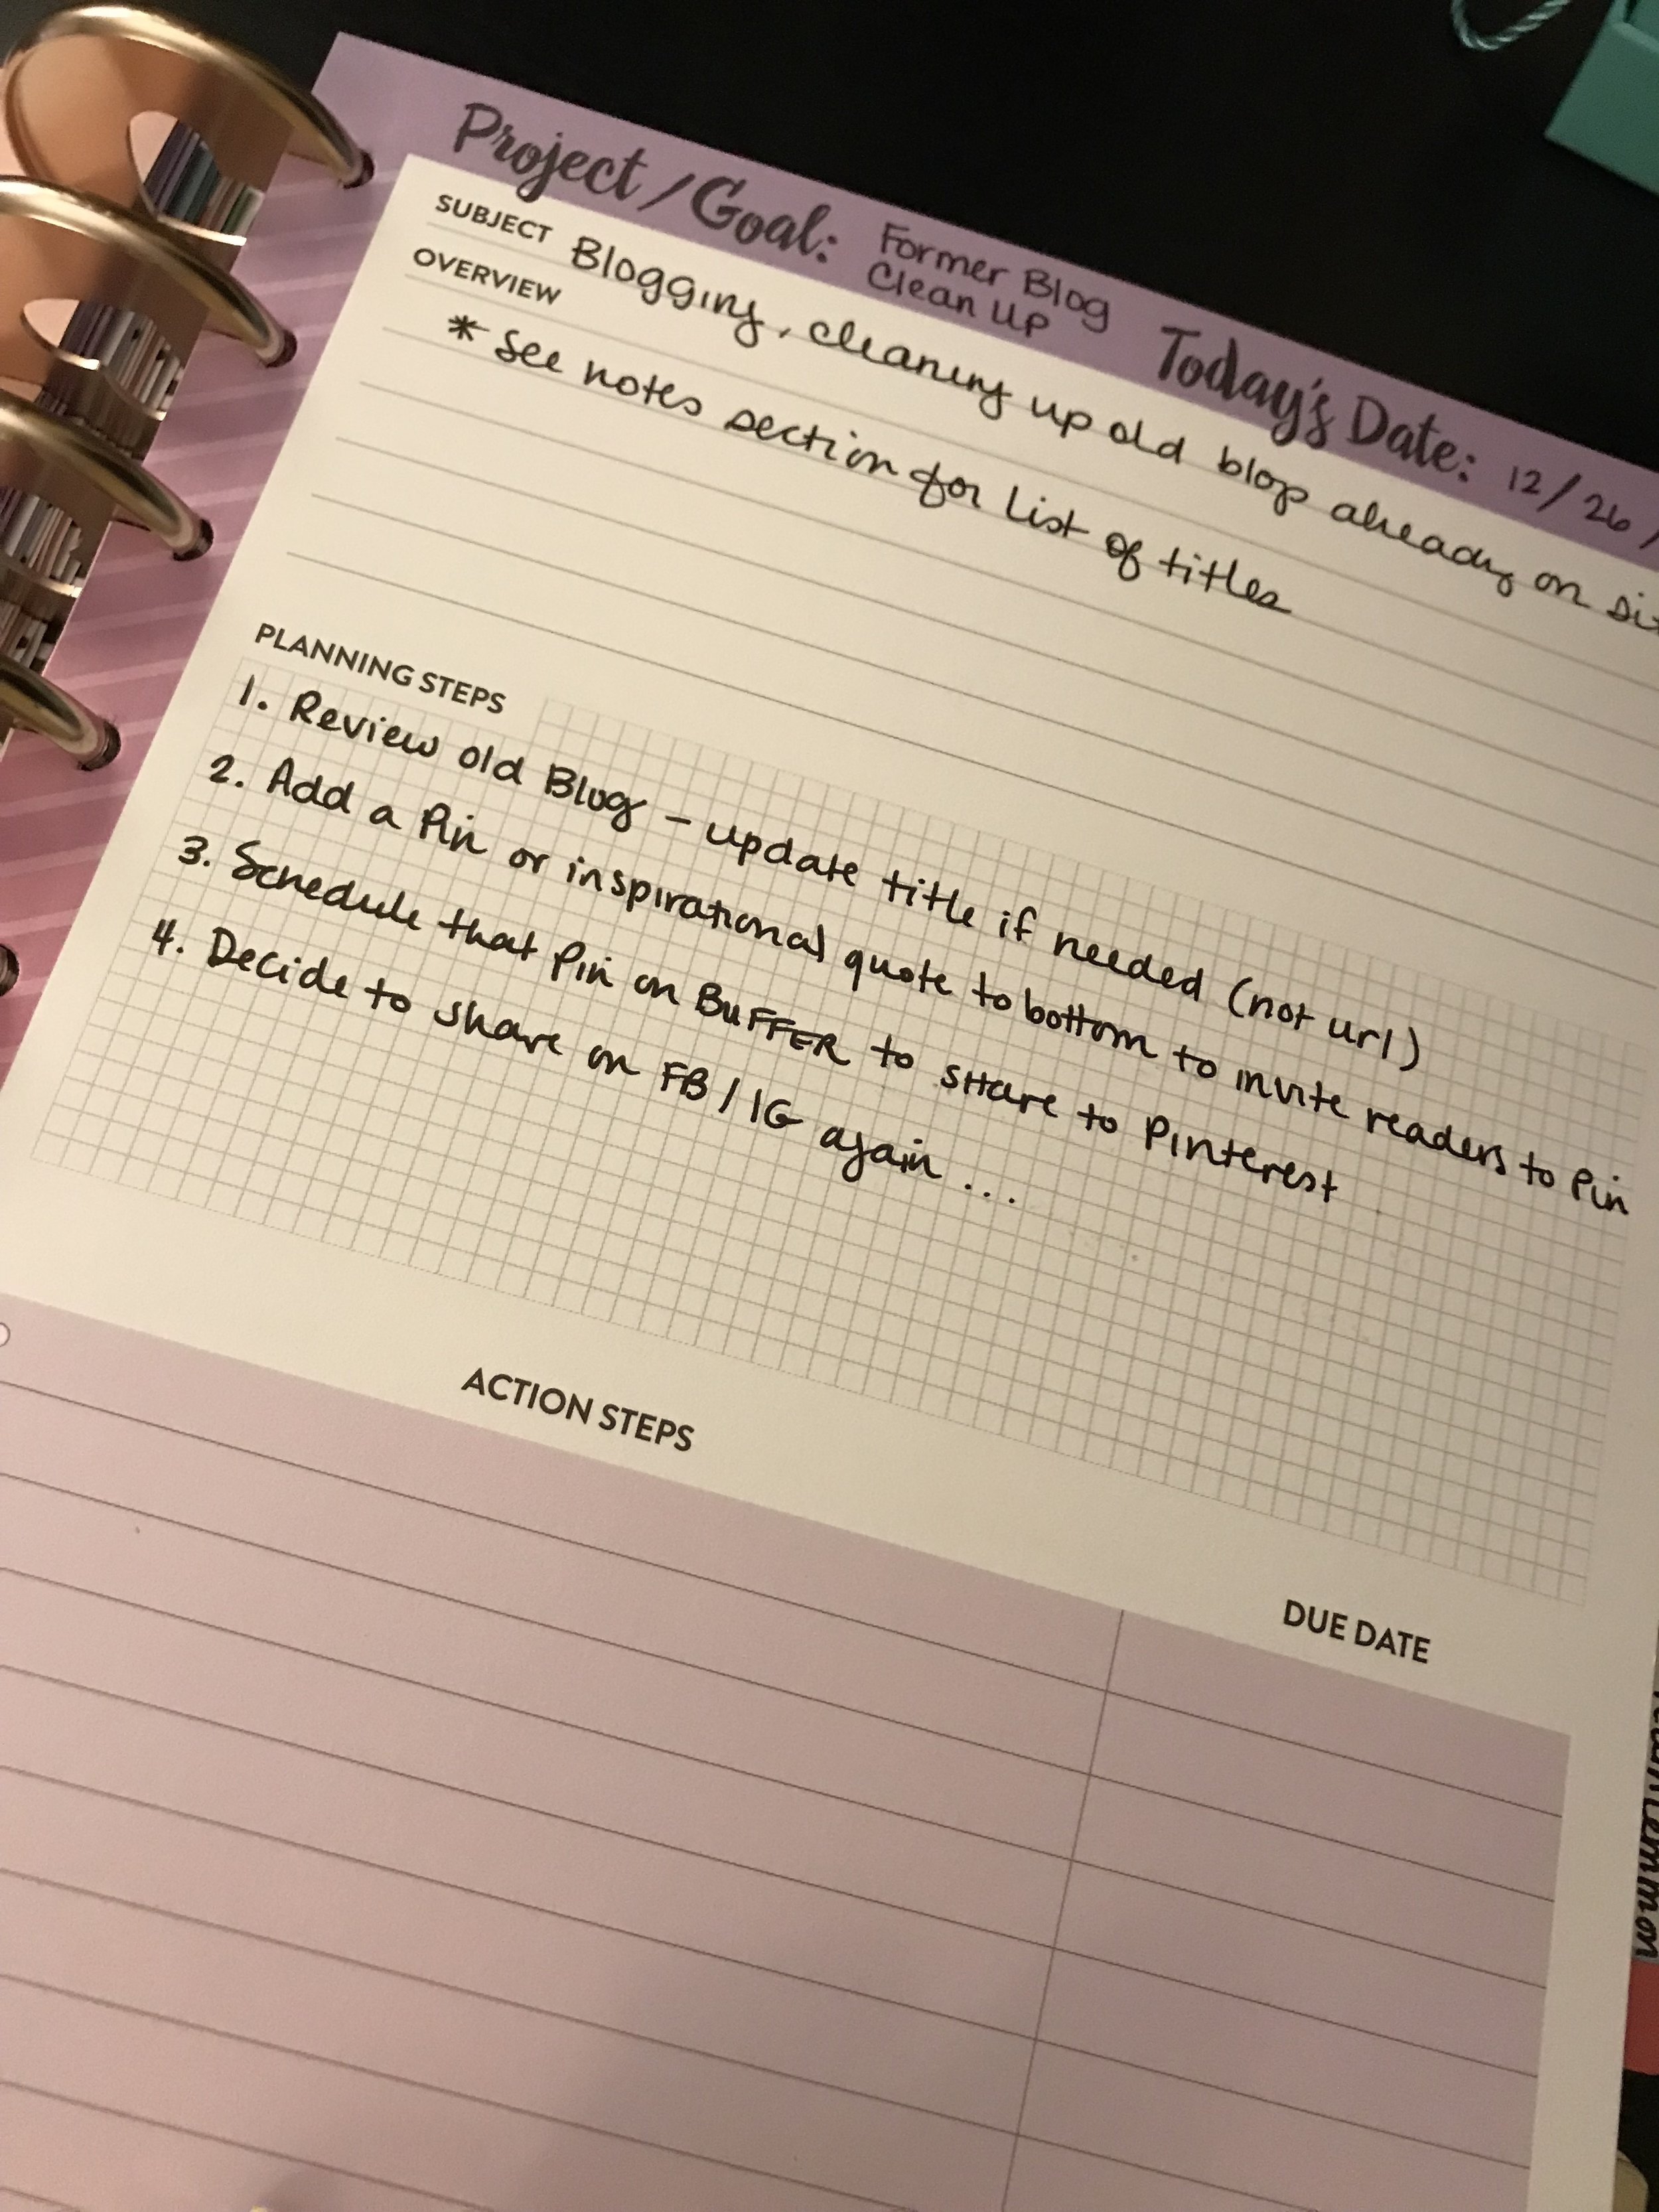 Project/Goal: Former Blog Clean Up
Today's Date: 12/26/
SUBJECT Blogging, cleaning up old blogs already on
OVERVIEW
* See notes section for list of titles
PLANNING STEPS
1. Review old Blog - update title if needed (not url)
2. Add a Pin or inspirational quote to bottom to invite readers to Pin
3. Schedule that Pin on BUFFER to SHare to Pinterest
4. Decide to share on FB/IG again ...
ACTION STEPS
DUE DATE